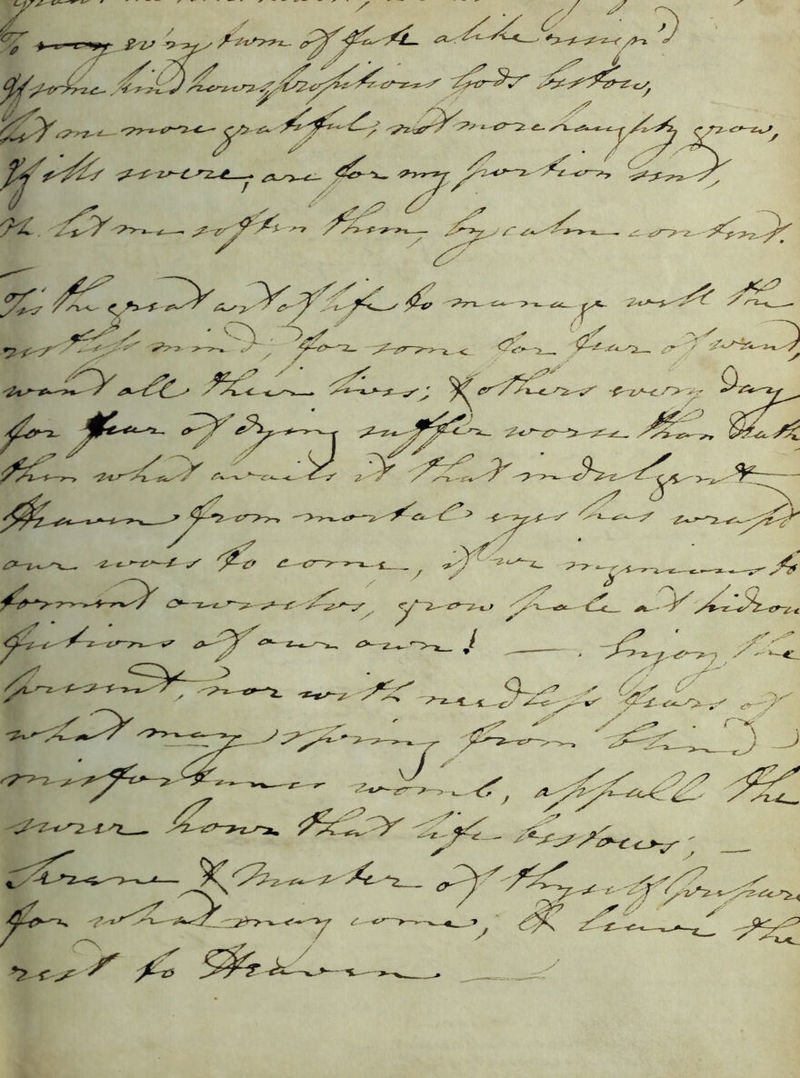 To every ev'ry turn of fate alike resign'd
If some kind hours, propitious Gods bestow,
Let me more grateful, not more haughty grow,
If ills severe, are for my portion sent,
O let me soften them, by calm content.
'Tis the great art of life to manage well the
restless mind; for some for fear of want,
want all their lives; & others every day
for fear of dying suffer worse than Death,
then what avails it that indulgent
Heaven from mortal eyes has wrapt
our woes to come, if we ingenious to
torment ourselves, grow pale at hideous
fictions of our own! —. Enjoy the
present, nor with needless fears of
what may spring from blind
misfortunes womb, appall the
surer hour that life bestows, —
Serene & Master of thyself prepare
for what may come, & leave the
rest to Heaven. —